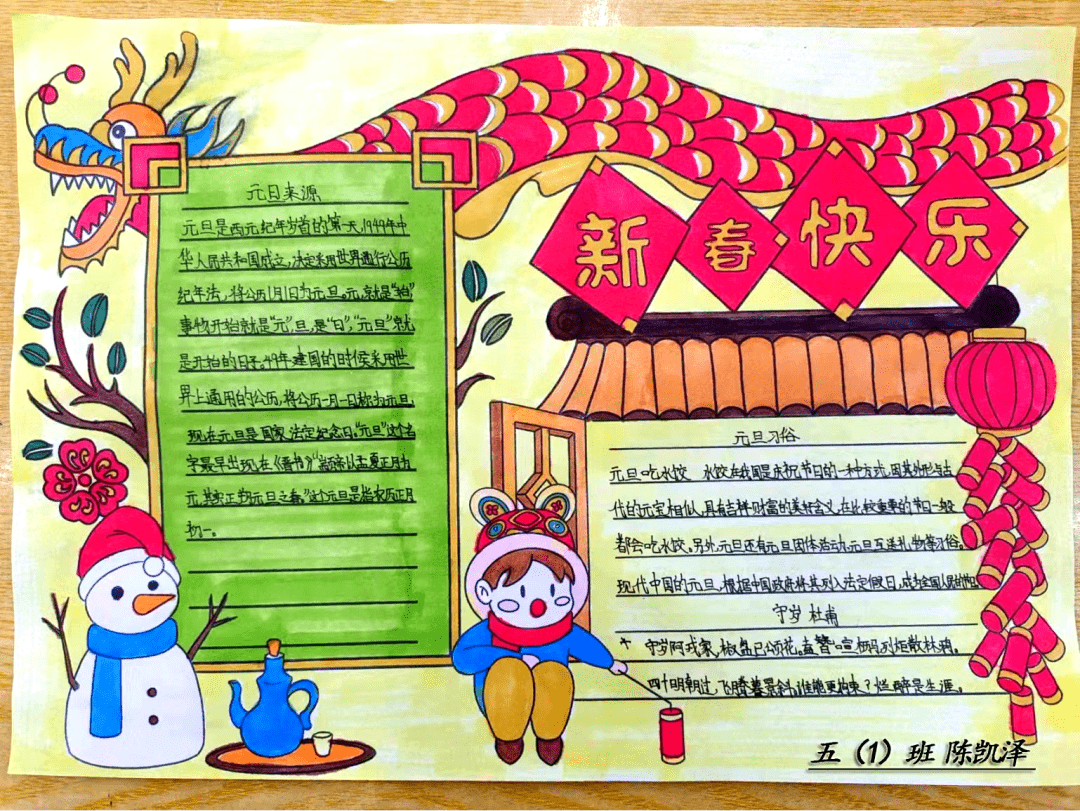 新春快乐
元旦来源
元旦是西元纪年岁首的第一天,1949年中
华人民共和国成立,决定采用世界通行公历
纪年法,将公历1月1日为元旦。元,就是“始”
事物开始就是“元”旦,是“日”,“元旦”就
是开始的日子。49年建国的时候采用世
界上通用的公历,将公历一月一日称为元旦,
现在元旦是国家法定纪念日。“元旦”这个名
字最早出现在《晋书》
元,其实正朔元旦之春。”这个元旦是指农历正月
初一。
元旦习俗
元旦吃水饺 水饺在我国是庆祝节日的一种方式,因其外形与古
代的元宝相似,具有吉祥财富的美好含义,在比较重要的节日一般
都会吃水饺。另外,元旦还有元旦团体活动,元旦互送礼物等习俗。
现代中国的元旦,根据中国政府将其列入法定假日,成为全国人民的
守岁 杜甫
守岁阿戎家,椒盘已颂花。盍簪喧枥马,列炬散林鸦。
四十明朝过,飞腾暮景斜。谁能更拘束?烂醉是生涯。
五(1)班 陈凯泽